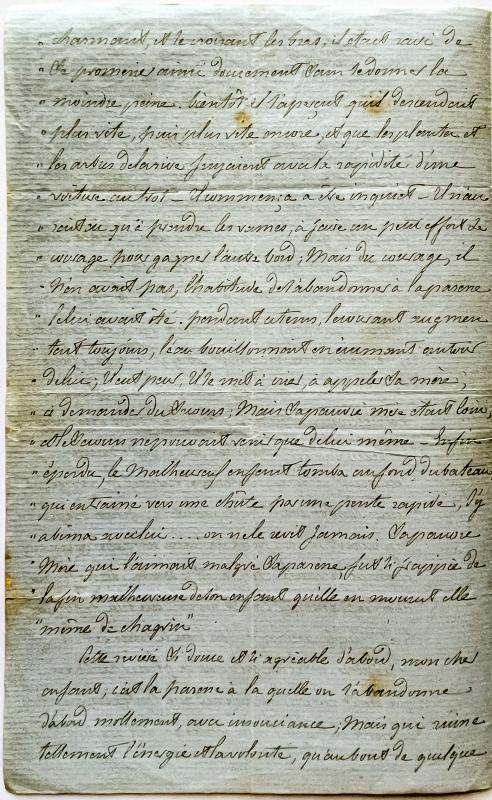 " charmant, et se croisant les bras, il était ravi de
" Se promener ainsi doucement Sans Se donner la
" moindre peine. bientôt il s'aperçut qu'il descendait
" plus vite, puis plus vite encore, et que les plantes et
" les arbres de la rive fuyaient avec la rapidité d'une
" voiture au trot _ Il commença a être inquiet _ Il n'au
" rait eu qu'à prendre les rames, à faire un petit effort de
" courage pour gagner l'autre bord; Mais du courage, il
" n'en avait pas, l'habitude de s'abandonner à la paresse
" le lui avait ôté. pendant ce tems, le courant augmen
" tait toujours, l'eau bouillonnait en écumant autour
" de lui; Il eut peur, Il Se mit à crier, à appeler Sa mère,
" à demander du Secours; Mais Sa pauvre mère était loin,
" et le Secours ne pouvait venir que de lui même _ Enfin
" éperdu, le Malheureux enfant tomba au fond du bateau
" qui entrainé vers une chûte par une pente rapide, S'y
" abima avec lui .... on ne le revit Jamais. Sa pauvre
" Mère qui l'aimait malgré Sa paresse, fut Si frappée de
" la fin malheureuse de son enfant qu'elle en mourut elle
" même de chagrin"
Cette rivière Si douce et Si agréable d'abord, mon cher
enfant, c'est la paresse à la quelle on S'abandonne
d'abord mollement, avec insouciance, Mais qui ruine
tellement l'énergie et la volonté, qu'au bout de quelque